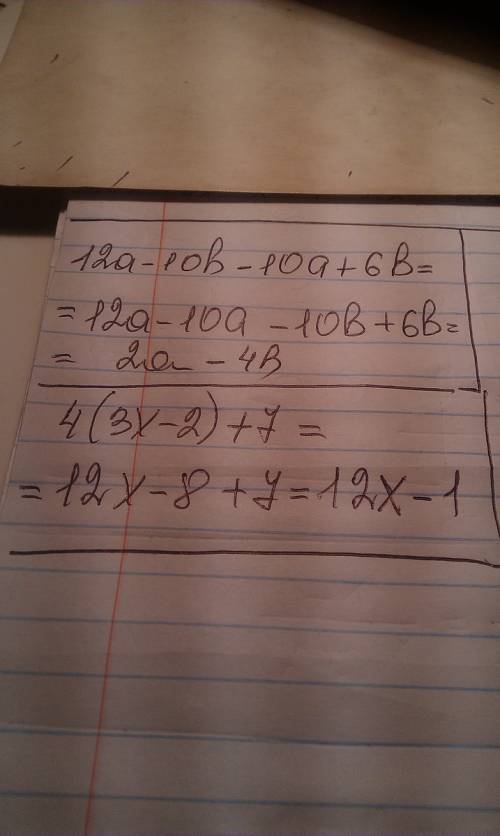 12a-10b-10a+6b=
=12a-10a-10b+6b=
= 2a-4b
4(3x-2)+7=
=12x-8+7=12x-1